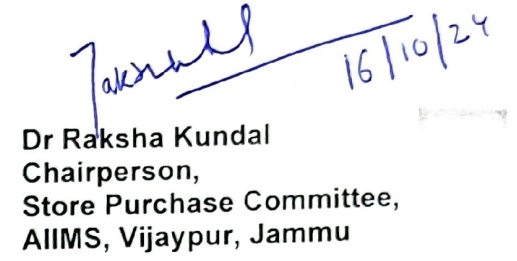 Raksha
16/10/24
Dr Raksha Kundal
Chairperson,
Store Purchase Committee,
AIIMS, Vijaypur, Jammu